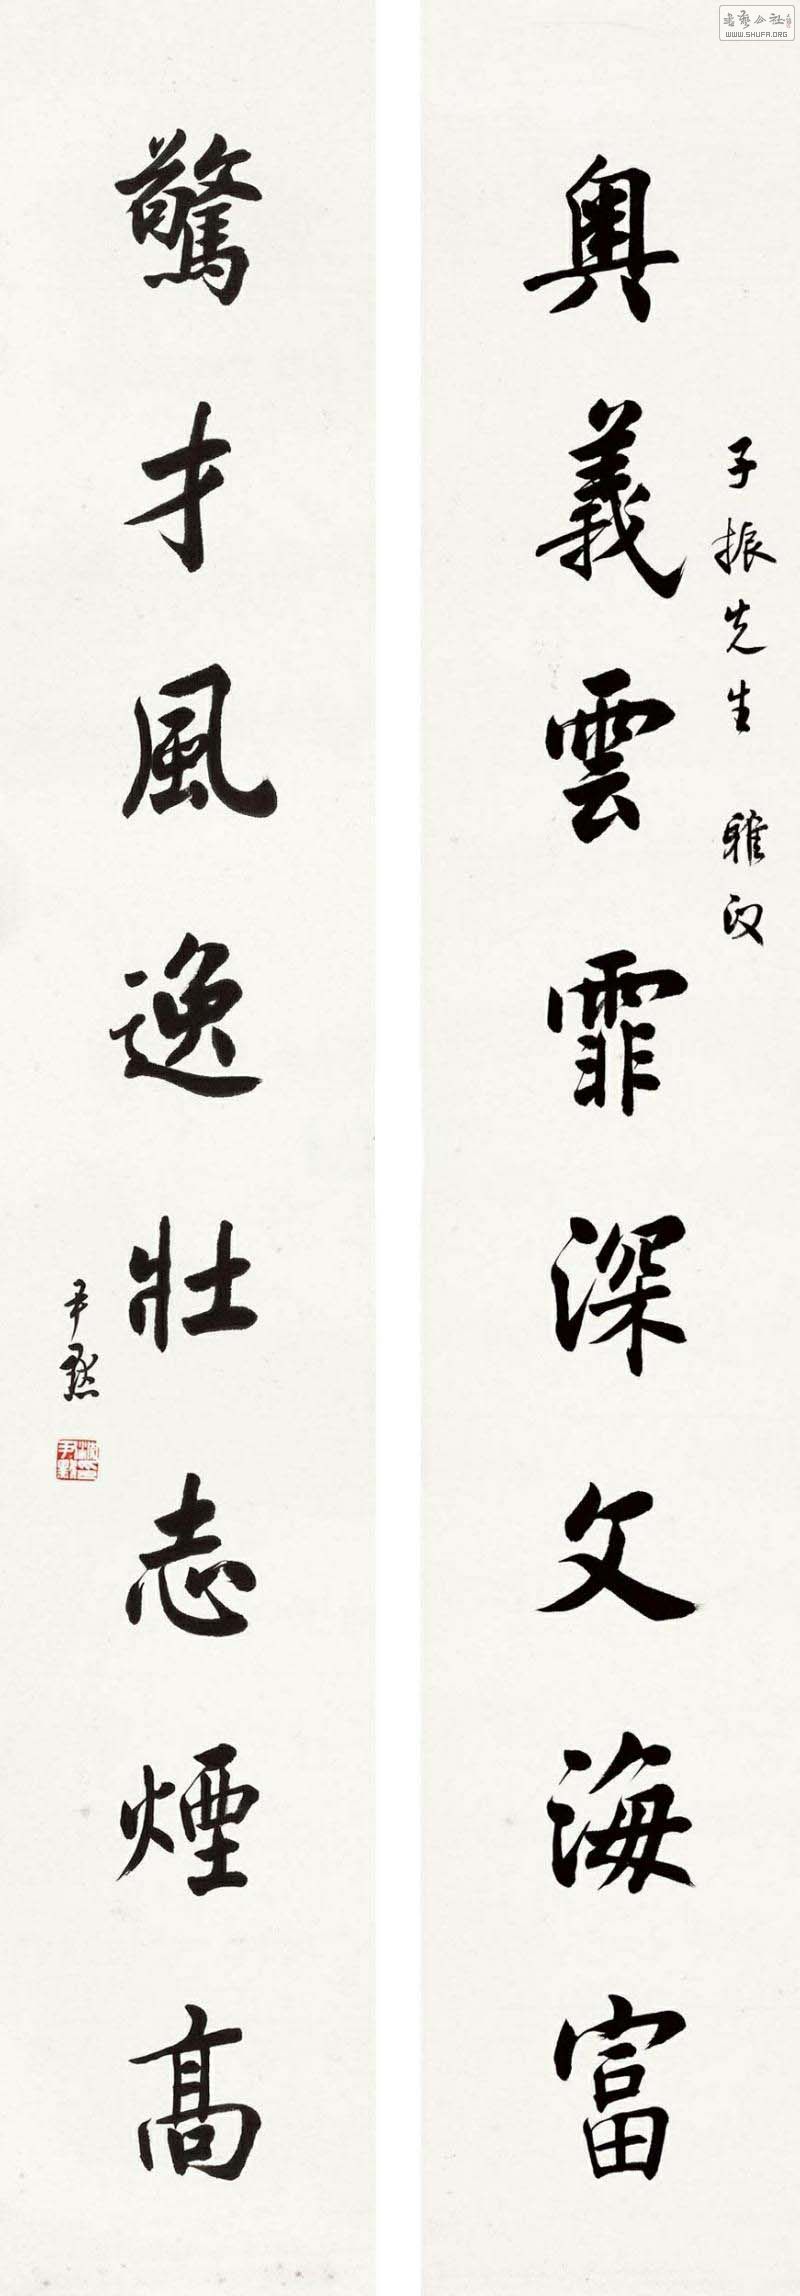 奧義雲霏深文海富
子振先生 雅正
驚才風逸壯志煙高
尹默
沈尹默印
書藝公社
WWW.SHUFA.ORG